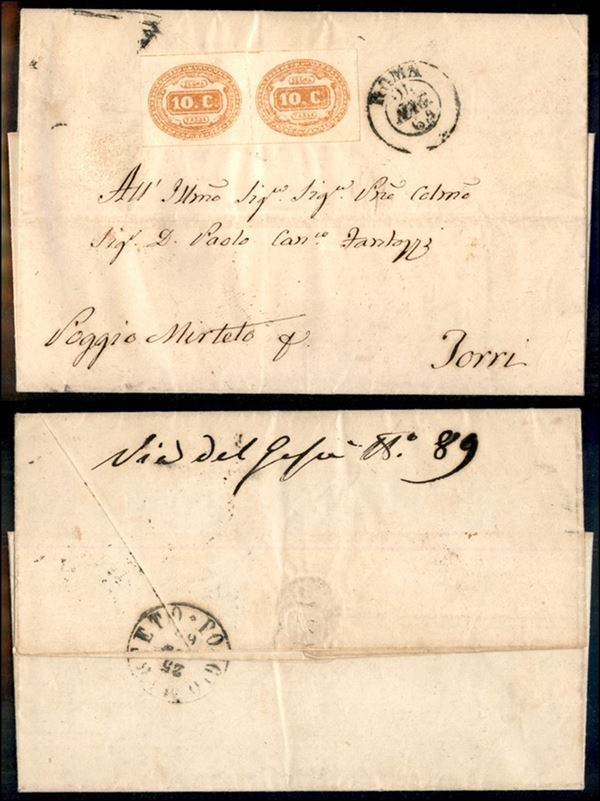 10. C. 10. C.
ROMA
MAG
64
All' Illmõ Sigre. Sigre. Prne Colmõ
Sigr. D. Paolo Canco. Fantozzi
Poggio Mirteto
Torri
Via del Gesù N.º 89
POGGIO MIRTETO
25